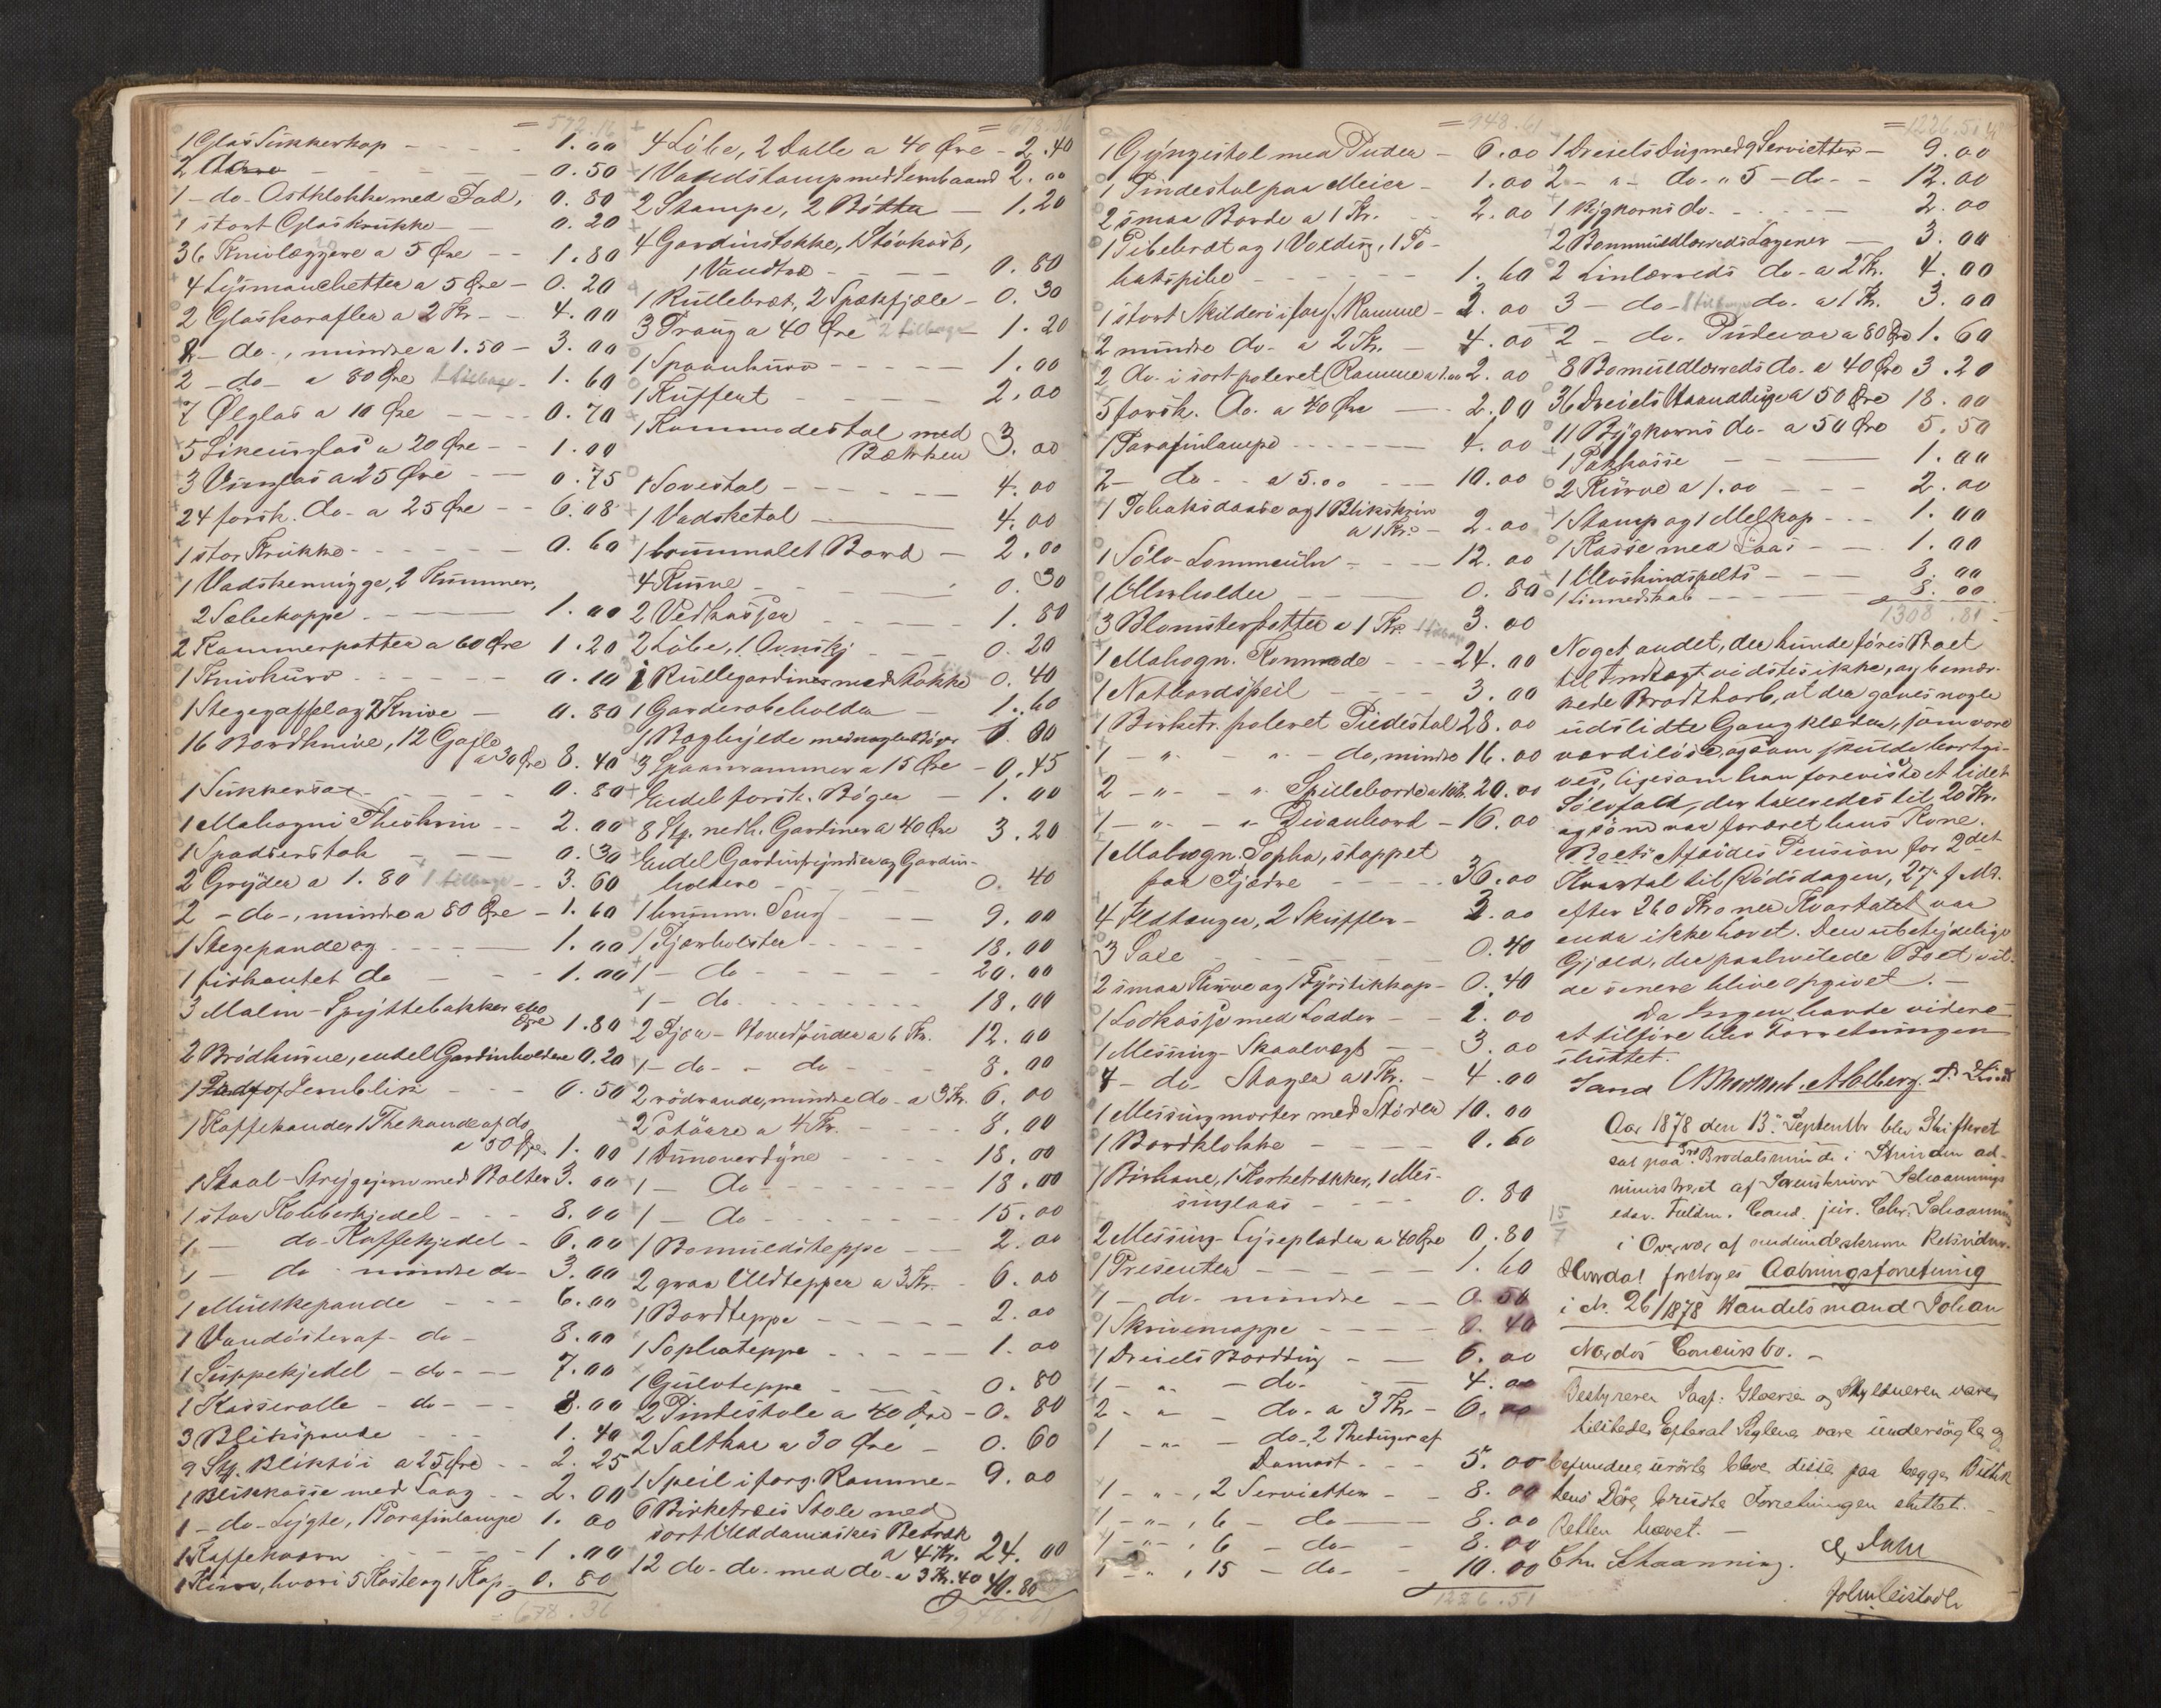 = 572.16
1 Glas Sukkerkop - - - - 1.00
2 - - - - - 0.50
1 - do - Ostklokke med Fad, 0.80
1 stort Glaskrukke - - 0.20
36 Knivlæggere a 5 Øre - - 1.80
4 Lysmanchetter a 5 Øre - 0.20
2 Glaskarafler a 2 Kr. - - 4.00
2 - do -, mindre a 1.50 - 3.00
2 - do - a 80 Øre 1 tilbage - 1.60
7 Ølglas a 10 Øre - - - - 0.70
5 Likeurglas a 20 Øre - - 1.00
3 Vinglas a 25 Øre - - 0.75
24 forsk. do - a 25 Øre - - 6.08
1 stor Krukke - - - - - 0.60
1 Vadskemugge, 2 Kummer,
2 Sæbekoppe - - 1.00
2 Kammerpotter a 60 Øre 1.20
1 Knivkurv - - - - - 0.10
1 Stegegaffel og 2 Knive - 0.80
16 Bordknive, 12 Gafle
a 30 Øre 8.40
1 Sukkersax - - - - - 0.80
1 Mahogni Theskrin - - 2.00
1 Spadserstok - - - 0.30
2 Gryder a 1.80 1 tilbage - - 3.60
2 - do -, mindre a 80 Øre - 1.60
1 Stegepande og - - - - 1.00
1 firkantet do - - - 1.00
3 Malin - Spyttebakker a 60
Øre 1.80
2 Brödkurve, endel Gardinholdere 0.20
1 Fad af Jernblik - - - 0.50
1 Kaffekande, 1 Thekande af do
a 50 Øre 1.00
1 Staal - Strygejern med Bolter 3.00
1 stor Kobberkjedel - - - 8.00
1 - do - Kaffekjedel - 6.00
1 - do - mindre do - 3.00
1 Multkepande - - - 6.00
1 Vandöster af - do - 8.00
1 Suppekjedel - do - - 7.00
1 Kasserolle - do - - - 8.00
3 Blikspande - - - 1.40
9 Stk. Bliktöi a 25 Øre - - 2.25
1 Blikkasse med Laag - - 2.00
1 - do - Lygte, 1 Parafinlampe 1.00
1 Kaffekværn - - - - - 1.00
1 Kurv, hvori 5 Koste og 1 Kop - 0.80
= 678.36
= 678.36
4 Löbe, 2 Balle a 40 Øre - 2.40
1 Vandstamp med Jernbaand 2.00
2 Stampe, 2 Bötter - 1.20
4 Gardinstokke, 1 Stövkost,
1 Vandtræ - - - - 0.80
1 Rullebræt, 2 Spækfjæle - 0.30
3 Traug a 40 Øre 2 tilbage - 1.20
1 Spaankurv - - - - - 1.00
1 Kuffert - - - - - 2.00
1 Kommodestol med
Bækken 3.00
1 Sovestol - - - - - - 4.00
1 Vadsketøl - 4.00
1 brunmalet Bord - 2.00
4 Kurve - - - - - 0.30
2 Vedkasser - - - - - 1.80
2 Löbe, 1 Ovnskj - - - 0.20
2 Rullegardiner med Stokke 0.40
1 Garderobeholder - 1.60
1 Boghylde med nogle Bøger 1.00
3 Spaanrammer a 15 Øre - 0.45
Endel forsk. Böger - 1.00
8 Stk. nedh. Gardiner a 40 Øre 3.20
Endel Gardinfryndser og Gardin-
holdere - - - - - 0.40
1 brunm. Seng - - - 9.00
1 Fjærbolster - - - - - 18.00
1 - do - - - - - - - 20.00
1 - do - - - - - - - 18.00
2 Fjær - Hovedpuder a 6 Kr. 12.00
1 - do - - do - - - - 8.00
2 rödrandede, mindre do - a 3 Kr. 6.00
2 Potöuse a 4 Kr. - - - - 8.00
1 Dunoverdyne - - - - 18.00
1 - do - - - - - - - 18.00
1 - do - - - - - - - 15.00
1 Bomuldsteppe - - - 2.00
2 graa Uldtepper a 3 Kr. - 6.00
1 Bordteppe - - - - - 2.00
1 Sophateppe - - - - - 1.00
1 Gulvteppe - - - - 0.80
2 Pindestole a 40 Øre - 0.80
2 Saltkar a 30 Øre - 0.60
1 Speil i forg. Ramme - 9.00
6 Birketræs Stole med
sort Ulddamaskes Betræk
a 4 Kr. 24.00
12 do - do - med do - a 3 Kr. 40 40.80
= 948.61
= 948.61
1 Gyngestol med Puder - 6.00
1 Pindestol paa Meier - 1.00
2 smaa Borde a 1 Kr. - - 2.00
1 Pibebræt og 1 1 To-
bakspibe - - - - - - 1.60
1 stort Skilderi i forg. Ramme - 2.00
2 mindre do - a 2 Kr. - 4.00
2 do - i sort poleret Ramme a 1.00 2.00
5 forsk. do - a 40 Øre - - 2.00
1 Parafinlampe - - - - - - 4.00
2 - do - - a 5.00 - - - 10.00
1 Tobaksdaase og 1 Blikskrin
a 1 Kr. - 2.00
1 Sölv - Lommeuhr - - - 12.00
1 Uhrholder - - - - 0.80
3 Blomsterpotter a 1 Kr. 1 tilbage 3.00
1 Mahogn. Komode - - - 24.00
1 Natbordspeil - - - 3.00
1 Birketr. poleret Piedestal 28.00
1 - " - - " - do, mindre 16.00
2 - " - - " Spilleborde a 10 Kr. 20.00
1 - " - - " Divanbord - 16.00
1 Mahogn. Sopha, stoppet
paa Fjædre - - - - - 36.00
4 Ildtænger, 2 Skuffler - 2.00
3 Saxe - - - - - - 0.40
2 smaa Kurve og 1 Fyrstikkop - 0.40
1 Lodkasse med Lodder - - 2.00
1 Messing - Skaalvægt - - 3.00
4 - do - Stager a 1 Kr. - 4.00
1 Messingmorter med Stöder 10.00
1 Bordklokke - - - - 0.60
1 Birhane, 1 Korketrækker, 1 Mes-
singlaas - - - - 0.80
2 Messing - Lyseplader a 40 Øre 0.80
1 Presenter - - - - - - 1.60
1 - do - mindre - - 0.50
1 Skrivemappe - - - - 0.40
1 Dreiels Borddug - - - 6.00
1 - " - - do - - - 4.00
2 - " - - do - a 3 Kr. - 6.00
1 - " - - do -, 2 Theduger af
Damast - - - 5.00
1 - " -, 2 Servietter - - 8.00
1 - " -, 6 - do - 8.00
1 - " -, 6 - do - 8.00
1 - " -, 15 - do - - 10.00
1226.51
= 1226.51
1 Dreiels Dug med 9 Servietter - 9.00
2 - " - do - " 5 - do - - 12.00
1 Bygkorns do - - - - - 2.00
2 Bommuldlærreds Lagener - 3.00
2 Linlærreds do - a 2 Kr. 4.00
3 - do - 1 tilbage do - a 1 Kr. 3.00
2 - do - Pudevar a 80 Øre 1.60
8 Bomuldlærreds do - a 40 Øre 3.20
36 Dreiels Haandduge a 50 Øre 18.00
11 Bygkorns do - a 50 Øre 5.50
1 Pakkasse - - 1.00
2 Kurve a 1.00 - - - 2.00
1 Stamp og 1 Melkop - - - 1.00
1 Kasse med Laas - - - 1.00
1 Ulveskindspelts - - - 8.00
1 Linnedskab - - - - 8.00
1308.81
Noget andet, der kunde föres Boet
til Indtægt vidstes ikke, og bemær-
kede Brodtkorb, at der gaves nogle
udslidte Gangklæder, som vare
værdilöse, og som skulde bortgi-
ves, ligesom han foreviste et lidet
Sölvfad, der taxeredes til 20 Kr.
og som var foræret hans Kone.
Boets Afdödes Pension for 2det
Kvartal til Dödsdagen, 27 f. M.
efter 260 Kroner Kvartalet var
enda ikke hævet. Den ubetydelige
Gjæld, der paahvilede Boet vil-
de senere blive opgivet. -
Da Ingen havde videre
at tilföre blev Forretningen
sluttet.
Sand A. Holberg.
Aar 1878 den 13de Septembr blev Skifteret
sat paa Brodalsminde i Strinden ad-
ministreret af Sorenskriver Schaannings
edsv. Fuldm. Cand. jur. Chr. Schaanning
15/7
i Overvær af undendeskrevne Retsvidner.
Hvordat foretoges Aabningsforretning
i No. 26/1878 Handelsmand Johan
Nardos Concursbo. -
Bestyreren Sagf. Gloersen og Skyldneren vare
tilstede. Efterat Seglene vare undersögte og
befundne urörte bleve disse paa begge
tens Döre brudte. Forretningen sluttet.
Retten hævet. -
Chr. Schaanning.